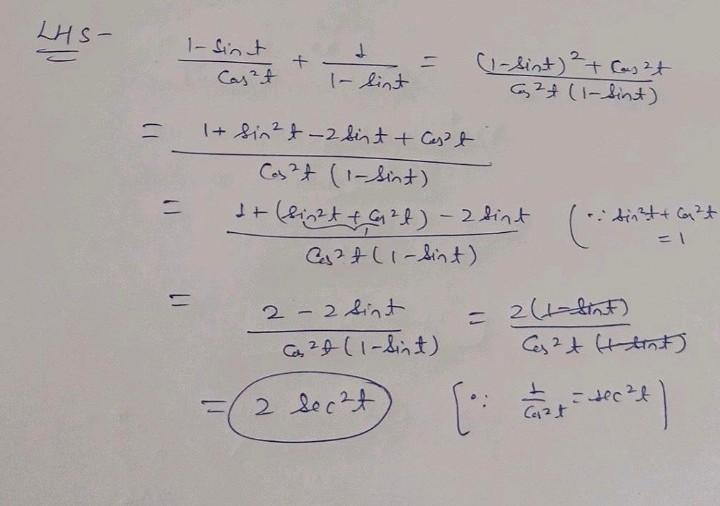 LHS -
(1 - Sin t)/(Cos²t) + 1/(1 - Sin t) = ((1 - Sin t)² + Cos²t)/(Cos²t (1 - Sin t))
= (1 + Sin²t - 2 Sin t + Cos²t)/(Cos²t (1 - Sin t))
= (1 + (Sin²t + Cos²t) - 2 Sin t)/(Cos²t (1 - Sin t)) (∵ Sin²t + Cos²t = 1
= (2 - 2 Sin t)/(Cos²t (1 - Sin t)) = 2(1 - Sin t)/(Cos²t (1 - Sin t))
= 2 Sec²t [∵ 1/Cos²t = sec²t]